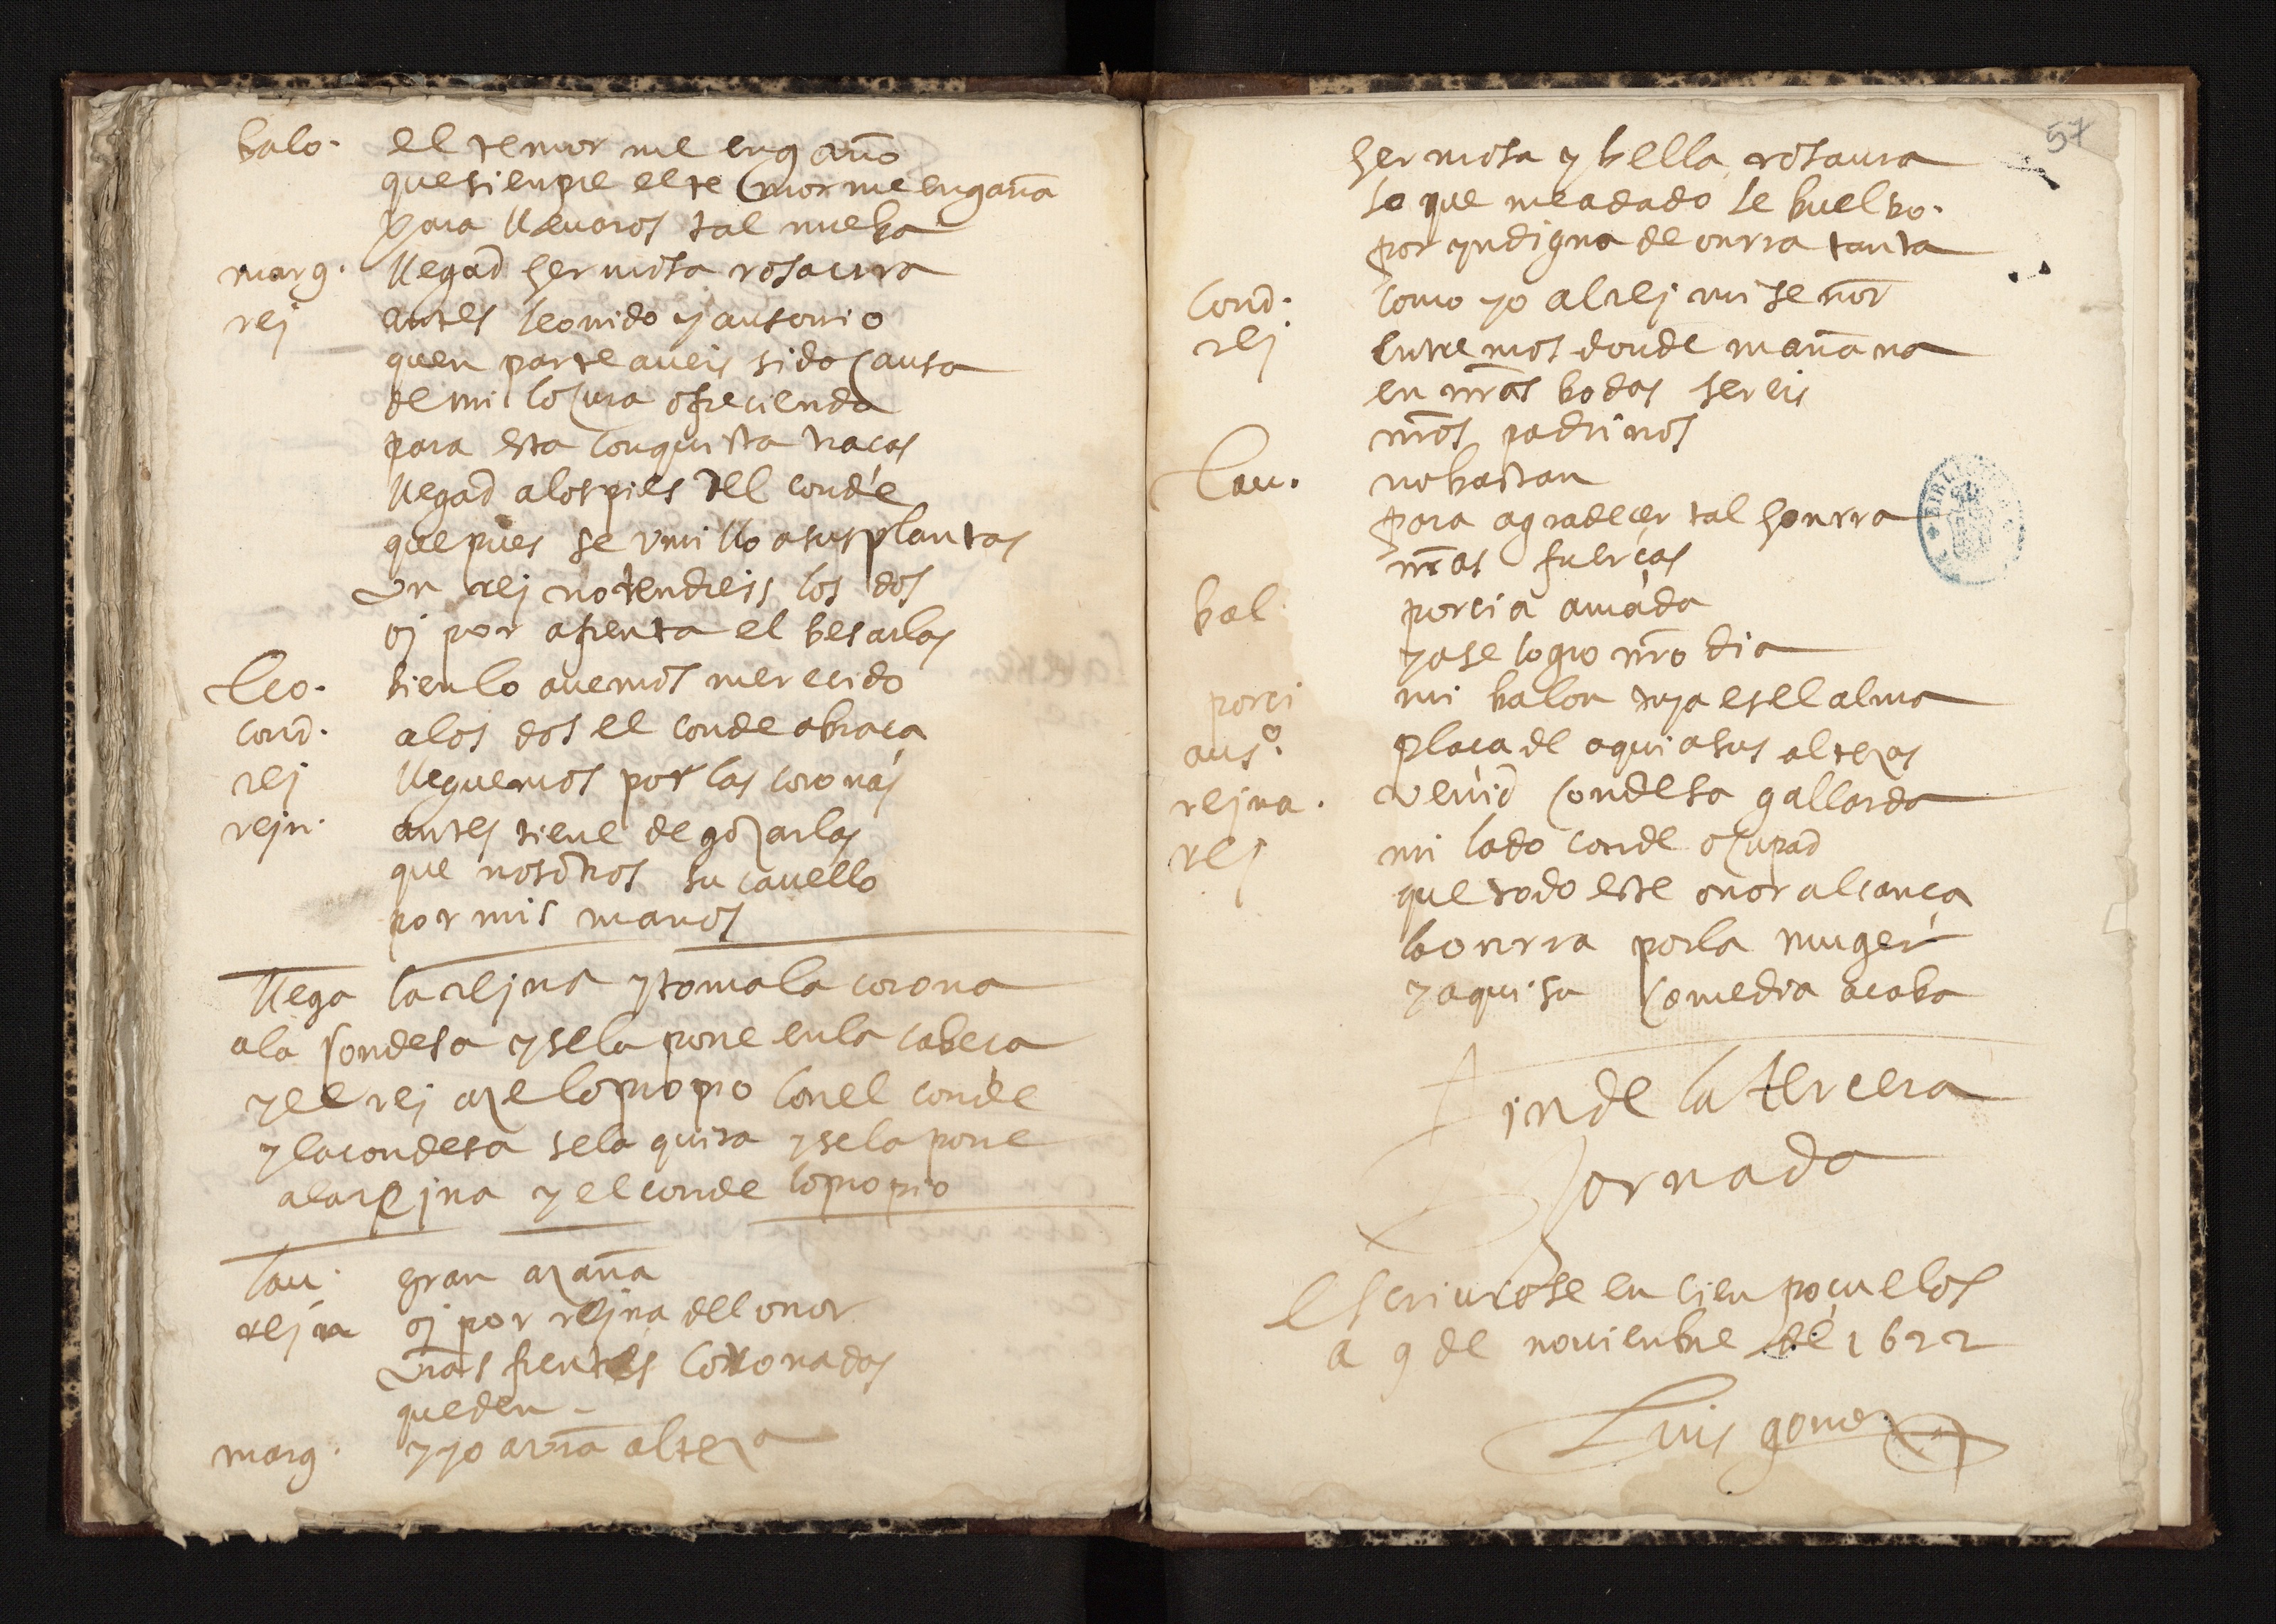 balo. el temor me engañó
que sienpre el temor me engaña
para lleuaros tal nueba
marg. llegad hermosa rosaura
rej antes leonido y ausonio
quen parte aueis sido causa
de mi locura ofrecienda
para esta conquista traças
llegad a los pies del conde
que pues se vmillo a sus plantas
vn rej no tendreis los dos
oj por afrenta el besarlas
leo. bien lo auemos merecido
cond. a los dos el conde abraça
rej lleguemos por las coronas
rejn. antes tiene de goçarlas
que nosotros su cauello
por mis manos
llega la rejna y toma la corona
a la condesa y se la pone en la cabeça
y el rej açe lo propio con el conde
y la condesa se la quita y se la pone
a la rejna y el conde lo propio
lau. gran açaña
rejna oj por rejna del onor
vras frentes coronadas
queden
marg. y yo a vra alteça
57
hermosa y bella rosaura
lo que me a dado le buelbo.
por yndigna de onrra tanta
cond. como yo al rej mi señor
rej entremos donde mañana
en nras bodas sereis
nros padrinos
lau. no bastan
para agradecer tal honrra
nras fuerças
bal porcia amada
ya se logro nro dia
porci mi balon tuya es el alma
auso. plaça de aqui a sus alteças
rejna. venid condesa gallarda
rej mi lado conde ocupad
que todo este onor alcança
la onrra por la muger
y aqui su comedia acaba
fin de la tercera
Jornada
escriuiose en cienpoçuelos
a 9 de nouienbre de 1622
Luis gomez